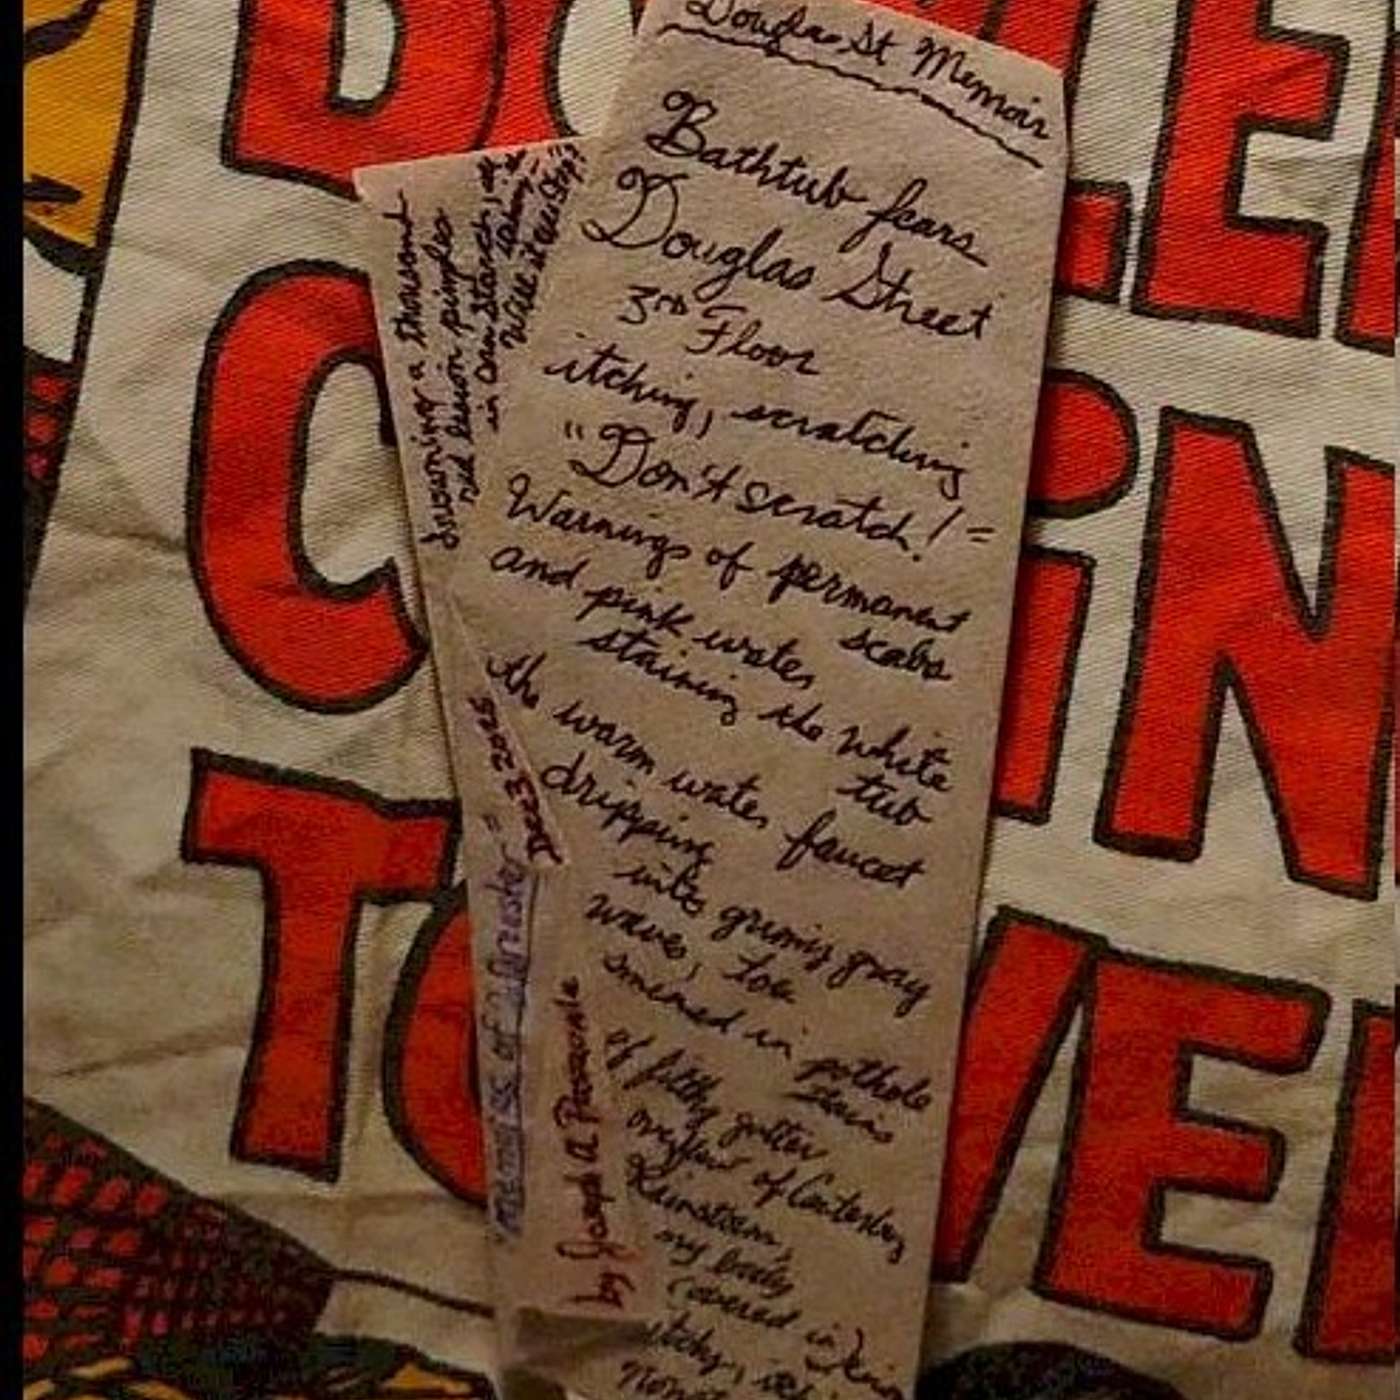 Douglas St Memoir
Bathtub fears
Douglas Street
3rd Floor
itching, scratching
"Don't scratch! =
Warnings of permanent
scabs
and pink water
staining the white
tub
the warm water faucet
dripping
into grimy gray
waves, Low
smeared in pothole
stains
of filthy gutter
overflow of Canterbury
Rainstorm,
my body
covered in
itchy,
drowning a thousand
red lesion pimples
in corn starch,
Will it ever Dry?"
Dec 3 2025
of a
by Joseph A Pazzonle
C IN
TO ER